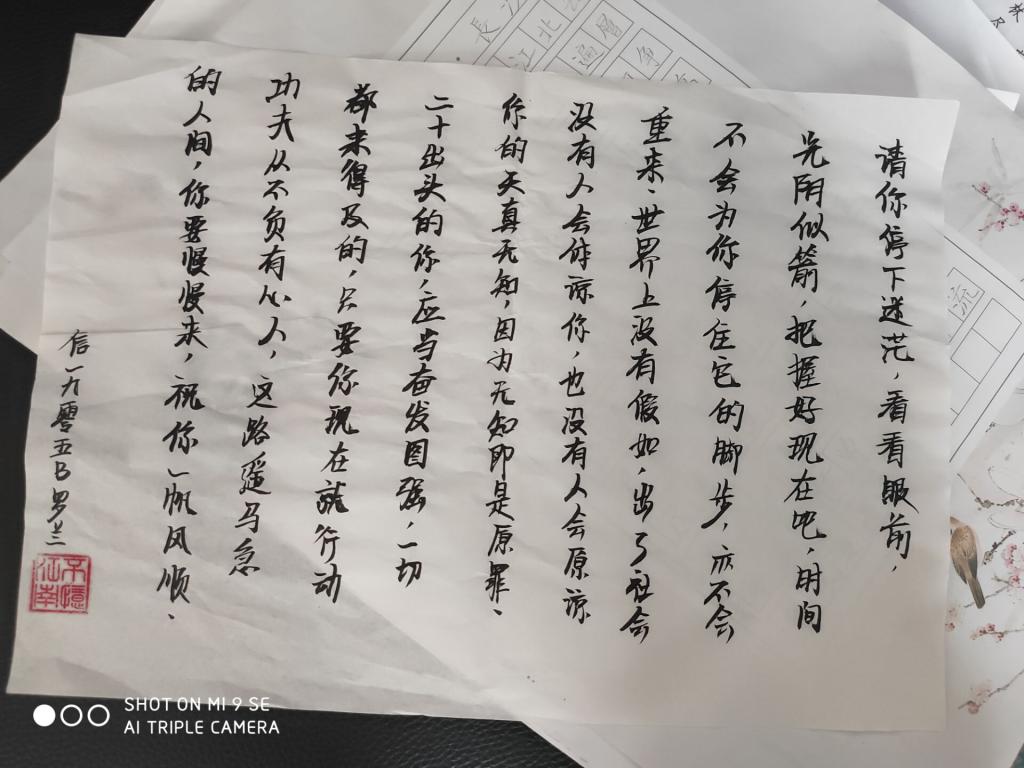 请你停下迷茫，看看眼前，
光阴似箭，把握好现在吧，时间
不会为你停住它的脚步，亦不会
重来、世界上没有假如，出了社会
没有人会体谅你，也没有人会原谅
你的天真无知，因为无知即是原罪、
二十出头的你，应当奋发图强，一切
都来得及的，只要你现在就行动
功夫从不负有心人，这路遥马急
的人间，你要慢慢来，祝你一帆风顺、
信一九零五B罗兰
不憶江南
長
江北
過層
争
流
SHOT ON MI 9 SE
AI TRIPLE CAMERA